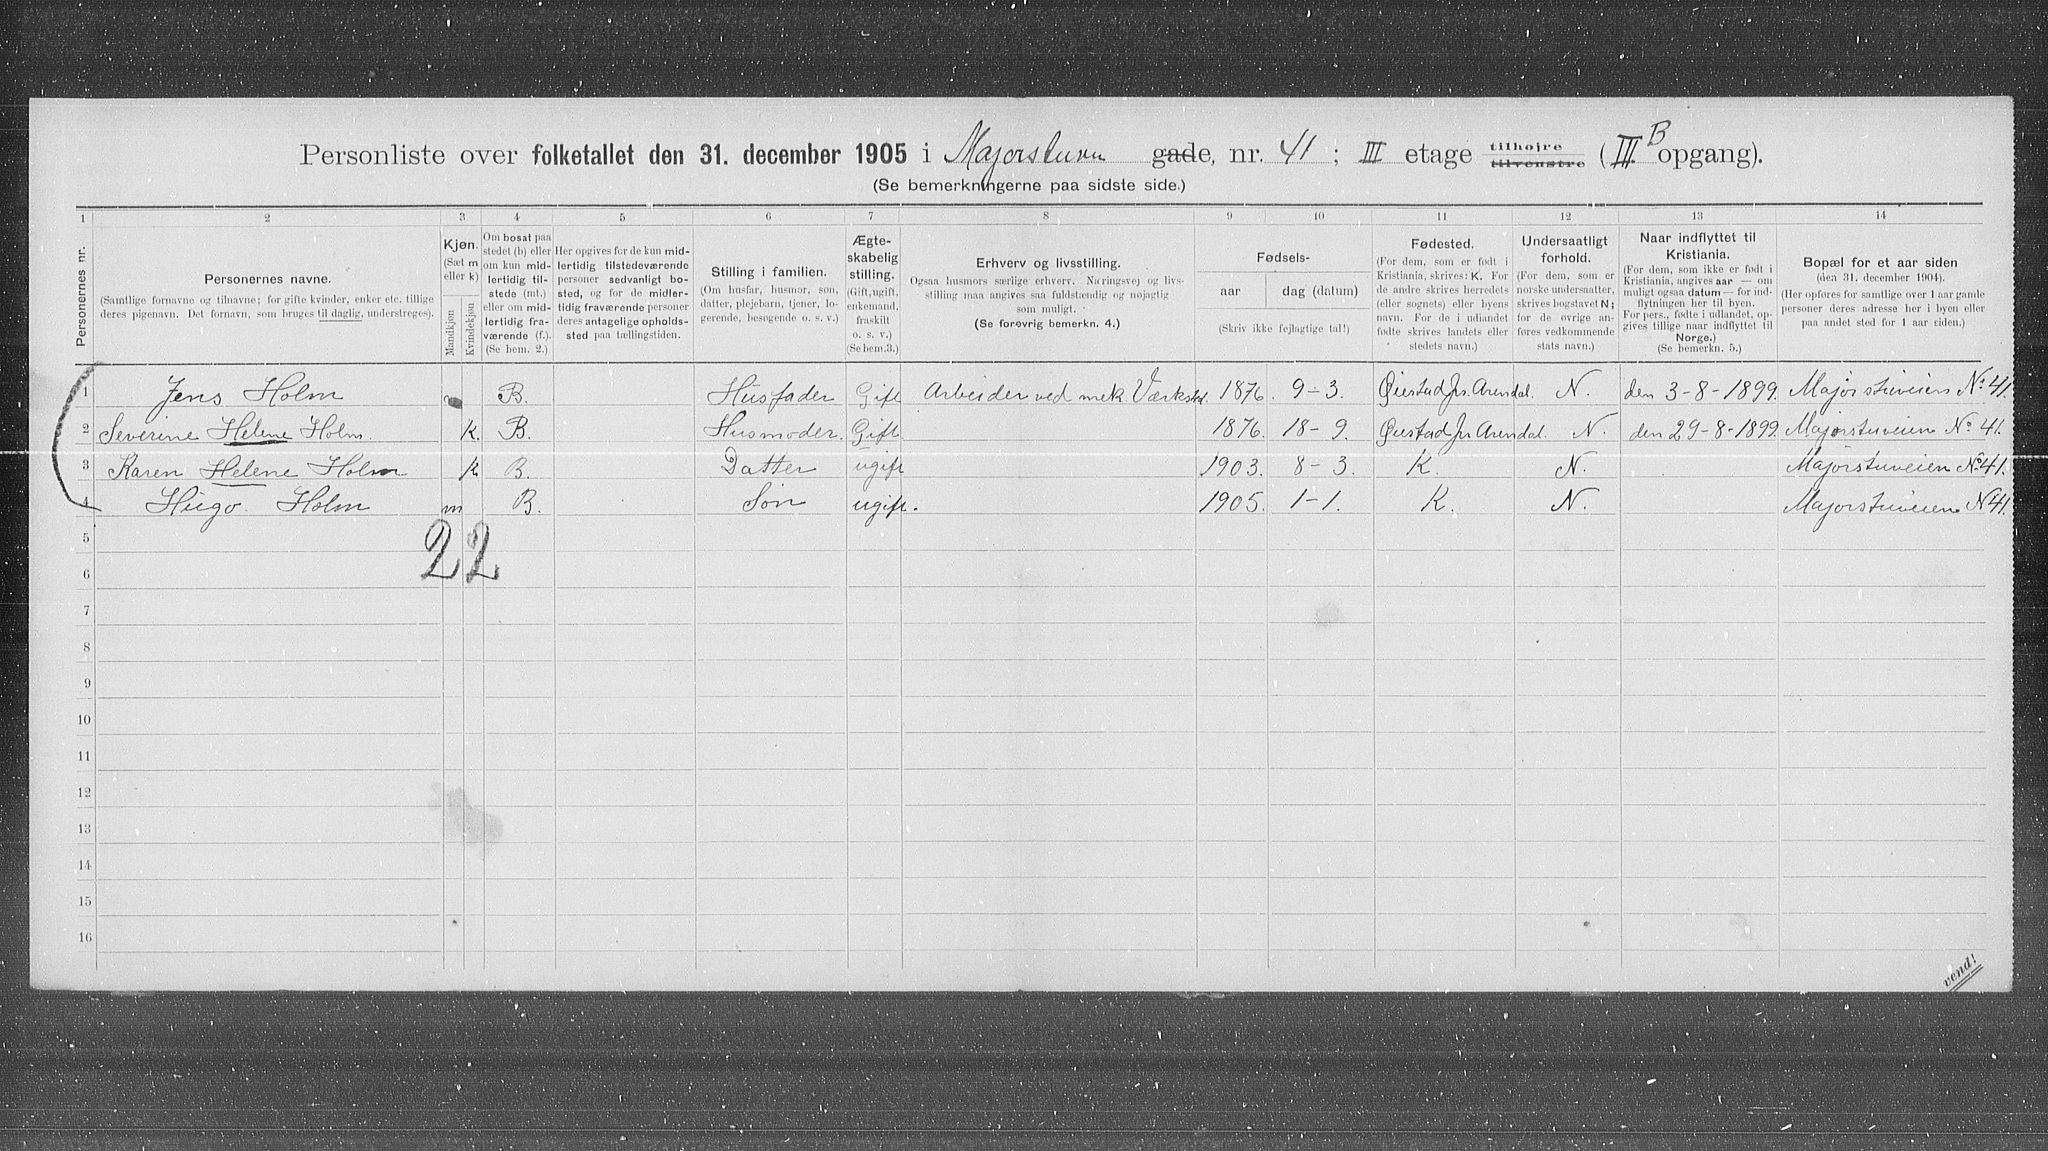 Personliste over folketallet den 31. december 1905 i Majorstuvn gade, nr. 41 ; III etage tilhøjre tilvenstre (III. B opgang).
(Se bemerkningerne paa sidste side.)
1 2 3 4 5 6 7 8 9 10 11 12 13 14
Personernes nr.
Personernes navne.
(Samtlige fornavne og tilnavne; for gifte kvinder, enker etc. tillige
deres pigenavn. Det fornavn, som bruges til daglig, understreges).
Kjøn.
(Sæt m
eller k)
Mandkjøn
Kvindekjøn
Om bosat paa
stedet (b) eller
om kun mid-
lertidig til-
stede (mt.) el-
ler om mid-
lertidig fra-
værende (f.).
(Se bem. 2.)
Her opgives for de kun mid-
lertidig tilstedeværende
personer sedvanlig bo-
sted, og for de midler-
tidig fraværende personer
deres antagelige opholds-
sted paa tællingstiden.
Stilling i familien.
(Om husfar, husmor, søn,
datter, plejebarn, tjener, lo-
gerende, besøgende o. s. v.)
Ægte-
skabelig
stilling.
(Gift, ugift,
enkemand,
fraskilt
o. s. v.)
(Se bem. 3.)
Erhverv og livsstilling.
Ogsaa husmors særlige erhverv. Næringsvej og livs-
stilling maa angives saa fuldstændig og nøjagtig
som muligt.
(Se forøvrig bemerkn. 4.)
Fødsels-
aar dag (datum)
(Skriv ikke fejlagtige tal!)
Fødested.
(For dem, som er født i
Kristiania, skrives: K. For
de andre skrives herredets
(eller sognets) eller byens
navn. For de i udlandet
fødte skrives landets eller
stedets navn.)
Undersaatligt
forhold.
(For dem, som er
norske undersaatter,
skrives bogstavet N;
for de øvrige an-
føres vedkommende
stats navn.)
Naar indflyttet til
Kristiania.
(For dem, som ikke er født i
Kristiania, angives aar — om
muligt ogsaa datum — for ind-
flytningen her til byen.
For pers., fødte i udlandet, op-
gives tillige naar indflyttet til
Norge.)
(Se bemerkn. 5.)
Bopæl for et aar siden
(den 31. december 1904).
(Her opføres for samtlige over 1 aar gamle
personer deres adresse her i byen eller
paa andet sted for 1 aar siden.)
1 Jens Holm m B. Husfader Gift Arbeider ved mek. Værksted. 1876. 9-3. Øiestad pr. Arendal. N. den 3-8-1899. Majorstuveien No 41.
2 Severine Helene Holm. K. B. Husmoder. Gift 1876. 18-9. Øiestad pr Arendal. N. den 29-8-1899. Majorstuveien No 41.
3 Karen Helene Holm K B. Datter ugift 1903. 8-3. K. N. Majorstuveien No 41.
4 Hugo. Holm m B. Søn ugift. 1905. 1-1. K. N. Majorstuveien N 41.
22
5
6
7
8
9
10
11
12
13
14
15
16
vend!